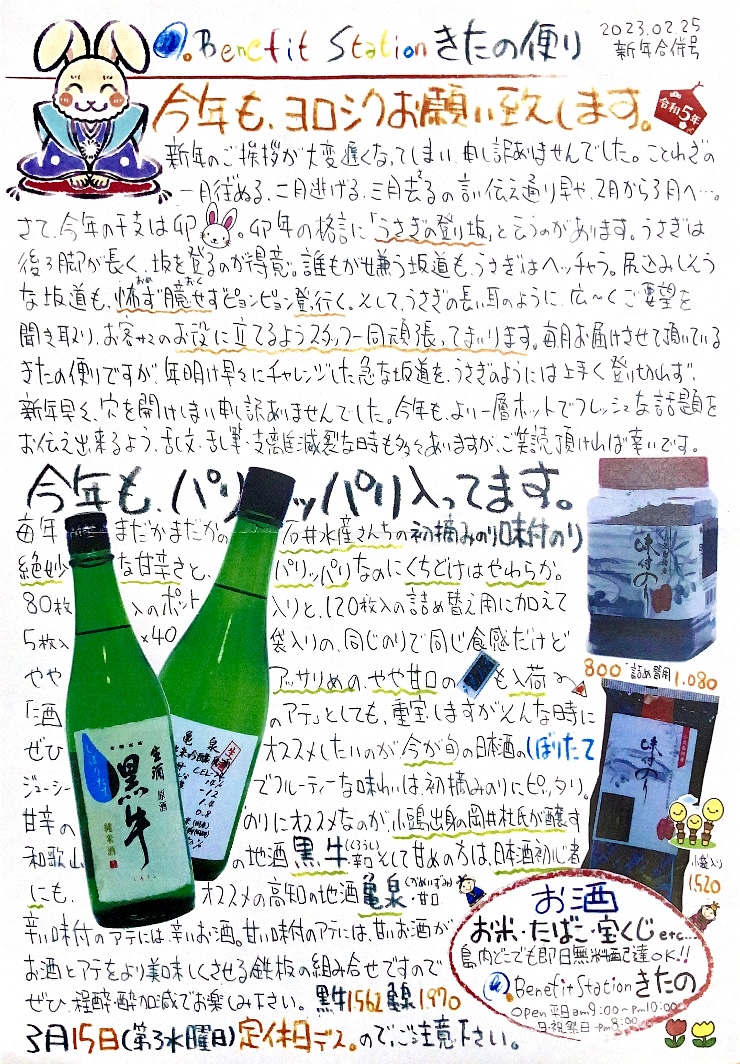 Benefit Station きたの便り
2023.02.25
新年合併号
今年も、ヨロシクお願い致します。
令和5年
新年のご挨拶が大変遅くなってしまい、申し訳ありませんでした。ことわざの
一月往ぬる、二月逃げる、三月去るの言い伝え通り早や、2月から3月へ…。
さて、今年の干支は卯。卯年の格言に「うさぎの登り坂」というのがあります。うさぎは
後ろ脚が長く、坂を登るのが得意。誰もが嫌う坂道も、うさぎはヘッチャラ。尻込みしそう
な坂道も、怖(おめ)ず臆(おく)せずピョンピョン登り行く。そして、うさぎの長い耳のように、広〜くご要望を
聞き取り、お客サマのお役に立てるようスタッフ一同頑張ってまいります。毎月お届けさせて頂いている
きたの便りですが、年明け早々にチャレンジした急な坂道を、うさぎのようには上手く登り切れず、
新年早々、穴を開けしまい申し訳ありませんでした。今年も、より一層ホットでフレッシュな話題を
お伝え出来るよう、乱文・乱筆・支離滅裂な時も多々ありますが、ご笑読頂ければ幸いです。
今年も、パリッッパリ入ってます。
毎年 まだかまだかの 石井水産さんちの初摘みのり味付のり
絶妙 な甘辛さと、 パリッパリなのにくちどけはやわらか。
80枚 入のポット 入りと、120枚入の詰め替え用に加えて
5枚入 ×40 袋入りの、同じのりで同じ食感だけど
やや アッサリめの、やや甘口の も入荷
「酒 のアテ」としても、重宝しますがそんな時に
ぜひ オススメしたいのが今が旬の日本酒のしぼりたて
ジューシー でフルーティーな味わいは、初摘みのりにピッタリ。
甘辛の のりにオススメなのが、小鴨出身の岡井杜氏が醸す
和歌山 の地酒 黒牛(くろうし)・辛口 そして甘めの方は、日本酒初心者
にも、 オススメの高知の地酒 亀泉(かめいずみ)・甘口
辛い味付のアテには、辛いお酒。甘い味付のアテには、甘いお酒が
お酒とアテをより美味しくさせる鉄板の組み合せですので
ぜひ、程酔・酔加減でお楽しみ下さい。 黒牛1,562 亀泉1,970
3月15日(第3水曜日)定休日デス。のでご注意下さい。
味付のり
800 詰め替用 1,080
味付のり
小袋入り
1,520
しぼりたて
生酒
原酒
黒牛
純米酒
亀泉
純米吟醸原酒
CEL-24
14%
-12
1.4
0.8
お酒
お米・たばこ・宝くじ etc…
島内どこでも即日無料配達OK!!
Benefit Station きたの
open 平日am9:00〜pm10:00
日・祝祭日 〜pm8:00